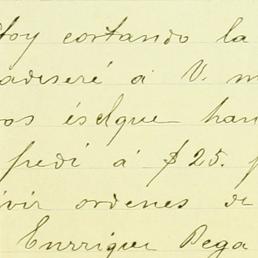 toy cortando la
adiseré á V. m
os ésclque han
pedi á $25. p
vir ordenes de
Enrrique Pega